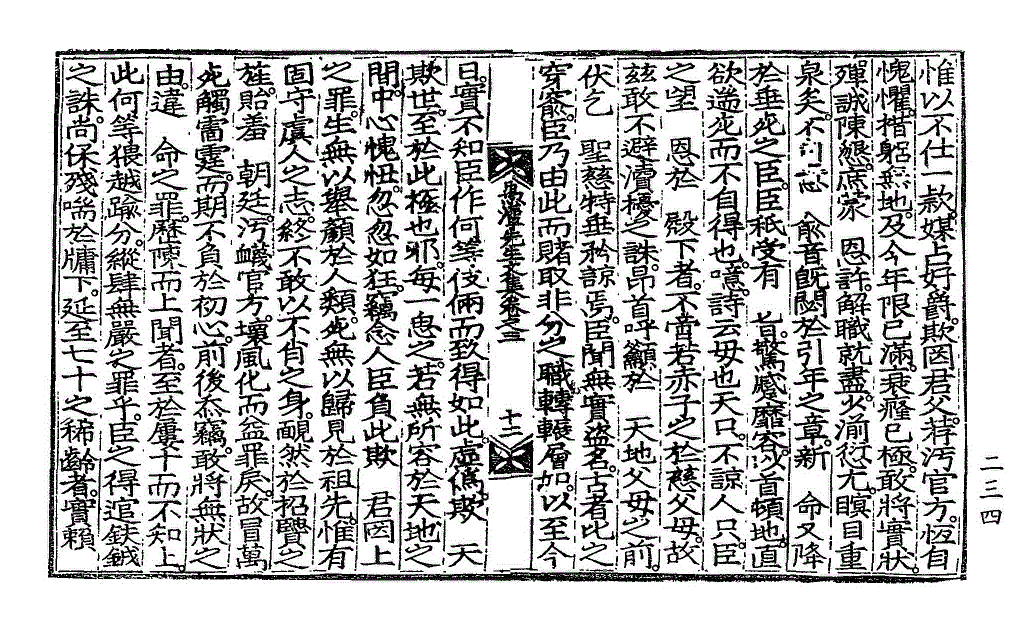 惟以不仕一款。媒占好爵。欺罔君父。荐汚官方。恆自
愧懼。措躬無地。及今年限已滿。衰癃已極。敢將實狀。
殫誠陳懇。庶蒙 恩許。解職就盡。少湔愆尤。瞑目重
泉矣。不 兪音旣閟於引年之章。新 命又降
於垂死之臣。臣祗受有 旨。驚感靡容。以首頓地。直
欲遄死而不自得也。噫。詩云毋也天只。不諒人只。臣
之望 恩於 殿下者。不啻若赤子之於慈父母。故
玆敢不避瀆擾之誅。昂首呼籲於 天地父母之前。
伏乞 聖慈特垂矜諒焉。臣聞無實盜名。古者比之
穿窬。臣乃由此而賭取非分之職。轉輾層加。以至今
先生文集卷之三 十二
日。實不知臣作何等伎倆而致得如此。虛僞欺 天
欺世。至於此極也邪。每一思之。若無所容於天地之
間。中心愧忸。忽忽如狂。竊念人臣負此欺 君罔上
之罪。生無以擧顔於人類。死無以歸見於祖先。惟有
固守虞人之志。終不敢以不肖之身。靦然於招賢之
旌。貽羞 朝廷。汚衊官方。壞風化而益罪戾。故冒萬
死觸雷霆。而期不負於初心。前後忝竊。敢將無狀之
由。違 命之罪。歷陳而上聞者。至於屢千而不知上。
此何等猥越踰分。縱肆無嚴之罪乎。臣之得逭鈇鉞
之誅。尙保殘喘於牖下。延至七十之稀齡者。實賴
二三四